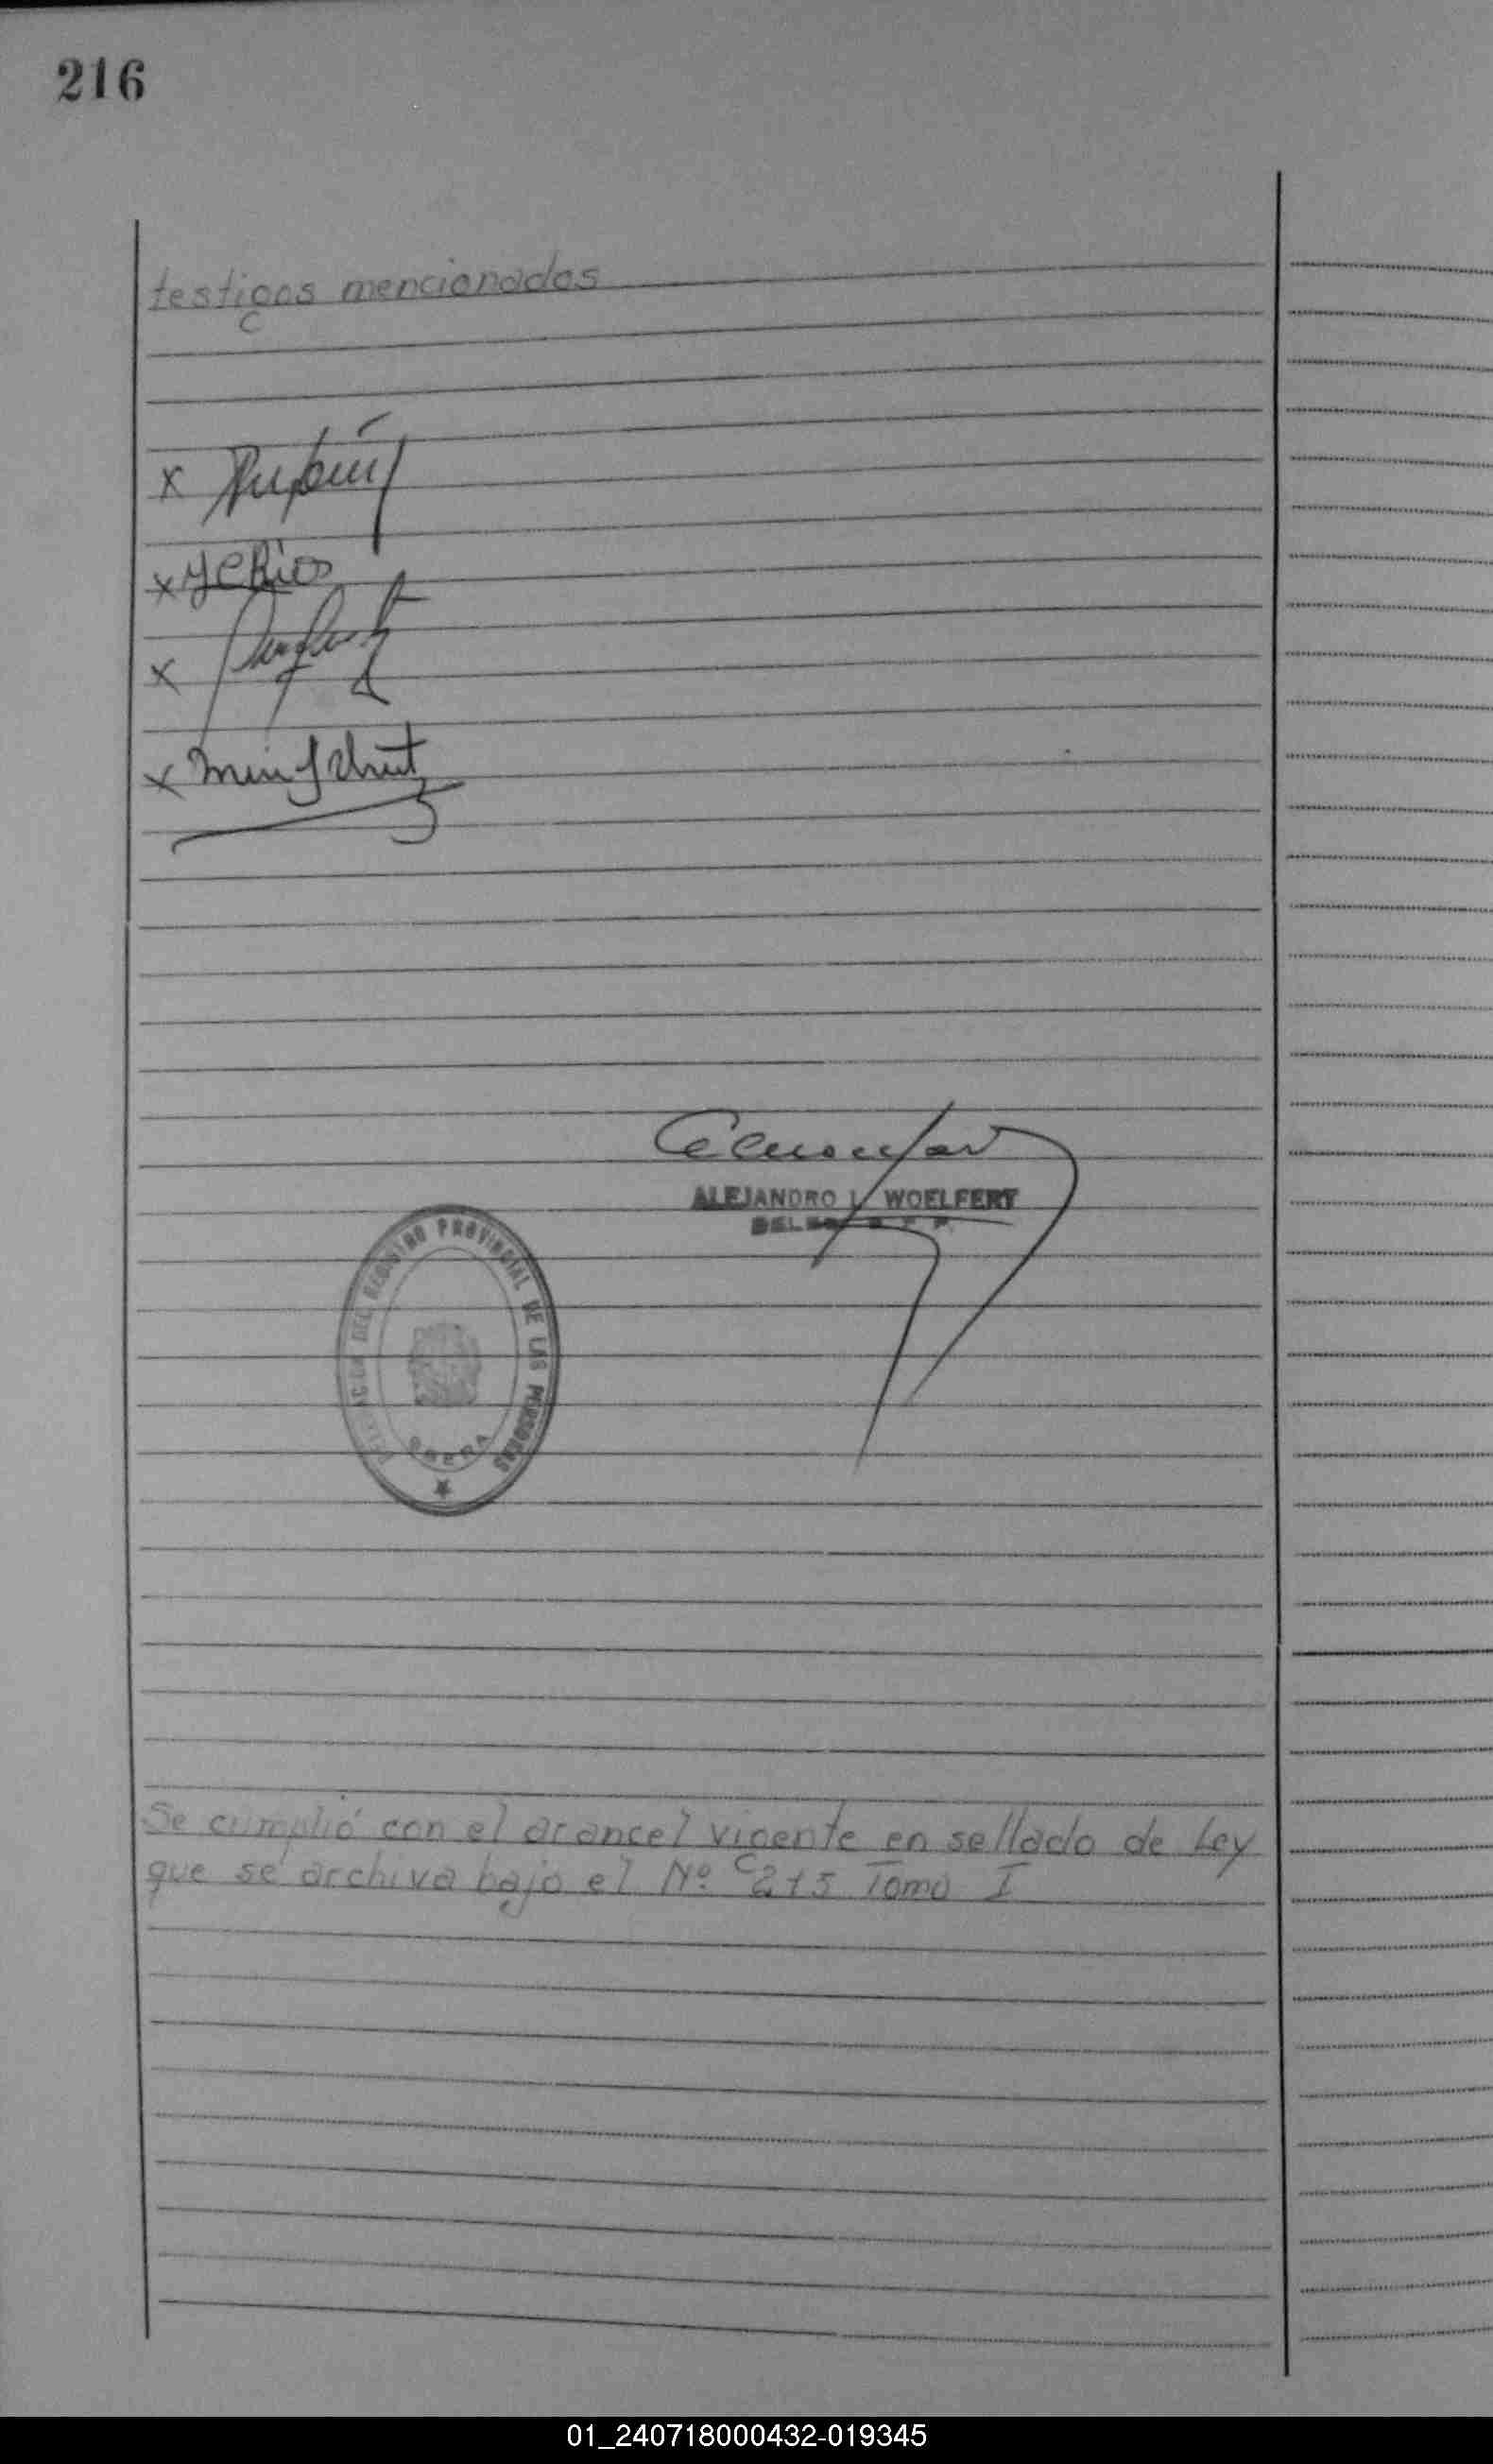 216
testigos mencionados
x
x YCRios
x
x
ALEJANDRO L. WOELFERT
DEL REGISTRO PROVINCIAL DE LAS PERSONAS
OBERA
Se cumplió con el arancel vigente en sellado de Ley
que se archiva bajo el Nº 215 Tomo I
01_240718000432-019345